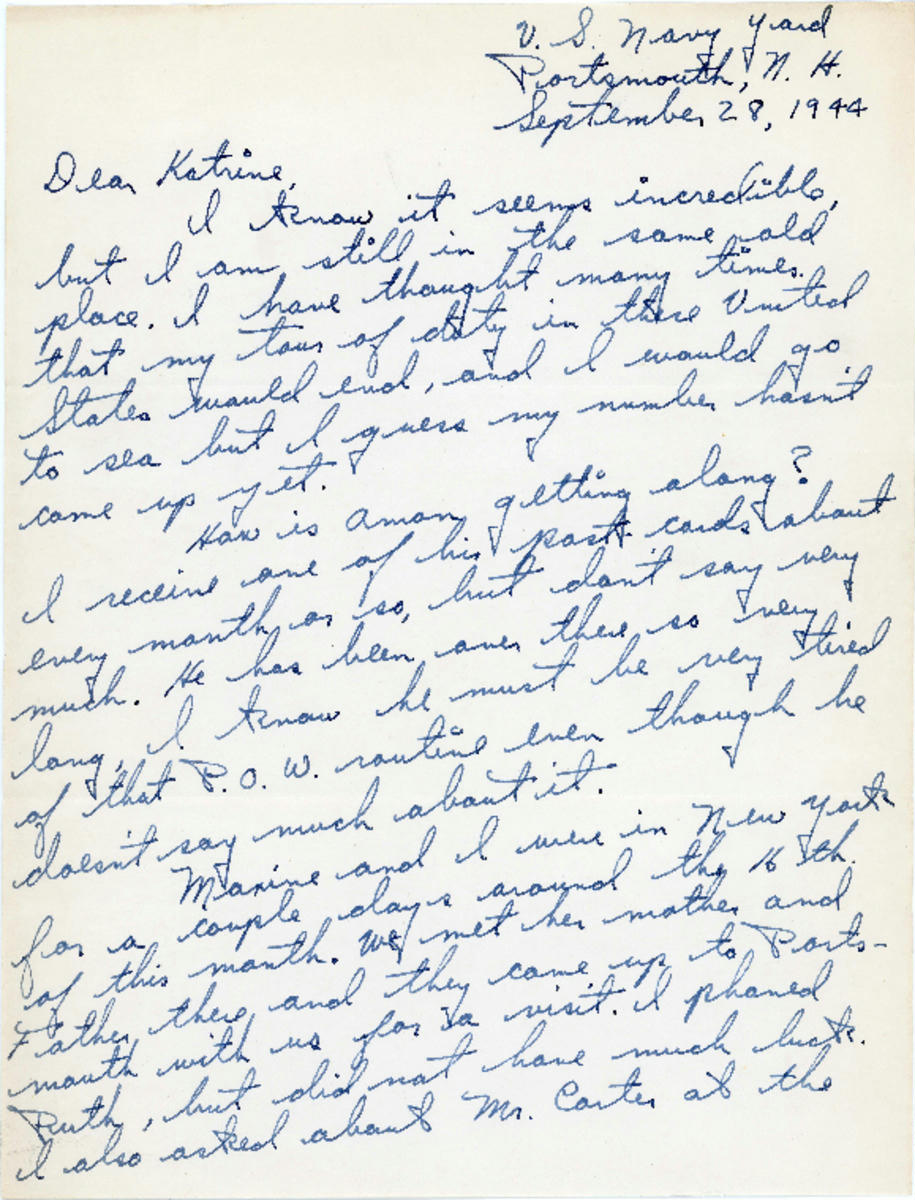 U. S. Navy Yard
Portsmouth, N. H.
September 28, 1944
Dear Katrine,
I know it seems incredible,
but I am still in the same old
place. I have thought many times
that my tour of duty in these United
States would end, and I would go
to sea but I guess my number hasn't
come up yet.
How is Amon getting along?
I receive one of his post cards about
every month or so, but don't say very
much. He has been over there so very
long, I know he must be very tired
of that P.O.W. routine even though he
doesn't say much about it.
Maxine and I were in New York
for a couple days around the 16th.
of this month. We met her mother and
Father there and they came up to Ports-
mouth with us for a visit. I phoned
Ruth, but did not have much luck.
I also asked about Mr. Carter at the